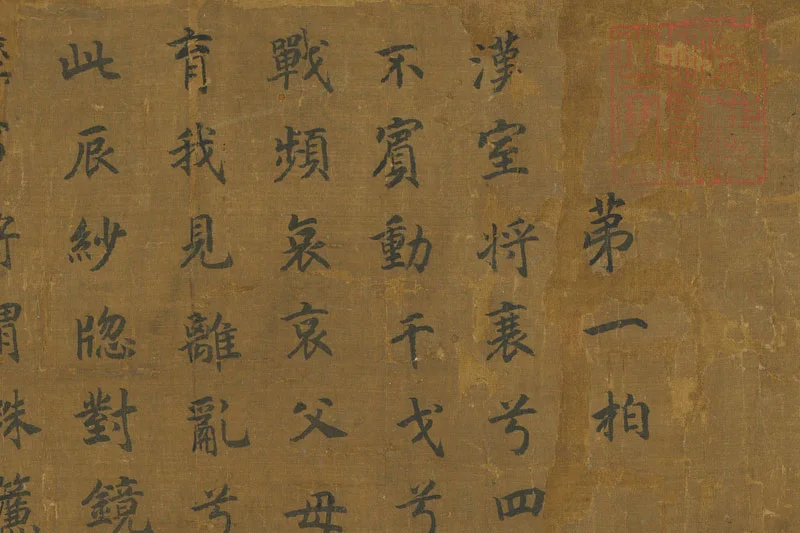 苐一柏
漢室将衰兮四
不賓動干戈兮
戰頻哀哀父母
育我見離亂兮
此辰紗牕對鏡
謂珠簾